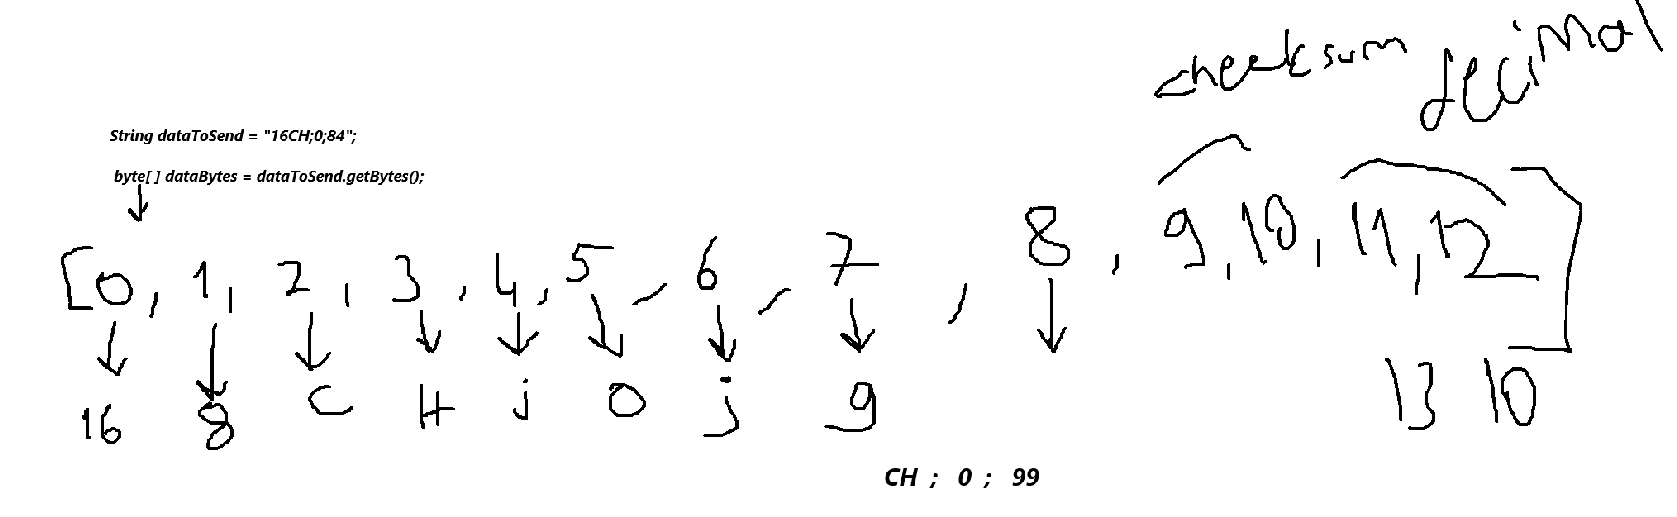 checksum decimal
String dataToSend = "16CH;0;84";
byte[ ] dataBytes = dataToSend.getBytes();
[0, 1, 2, 3, 4, 5, 6, 7, 8, 9, 10, 11, 12]
16 8 C H ; 0 ; 9
13 10
CH ; 0 ; 99